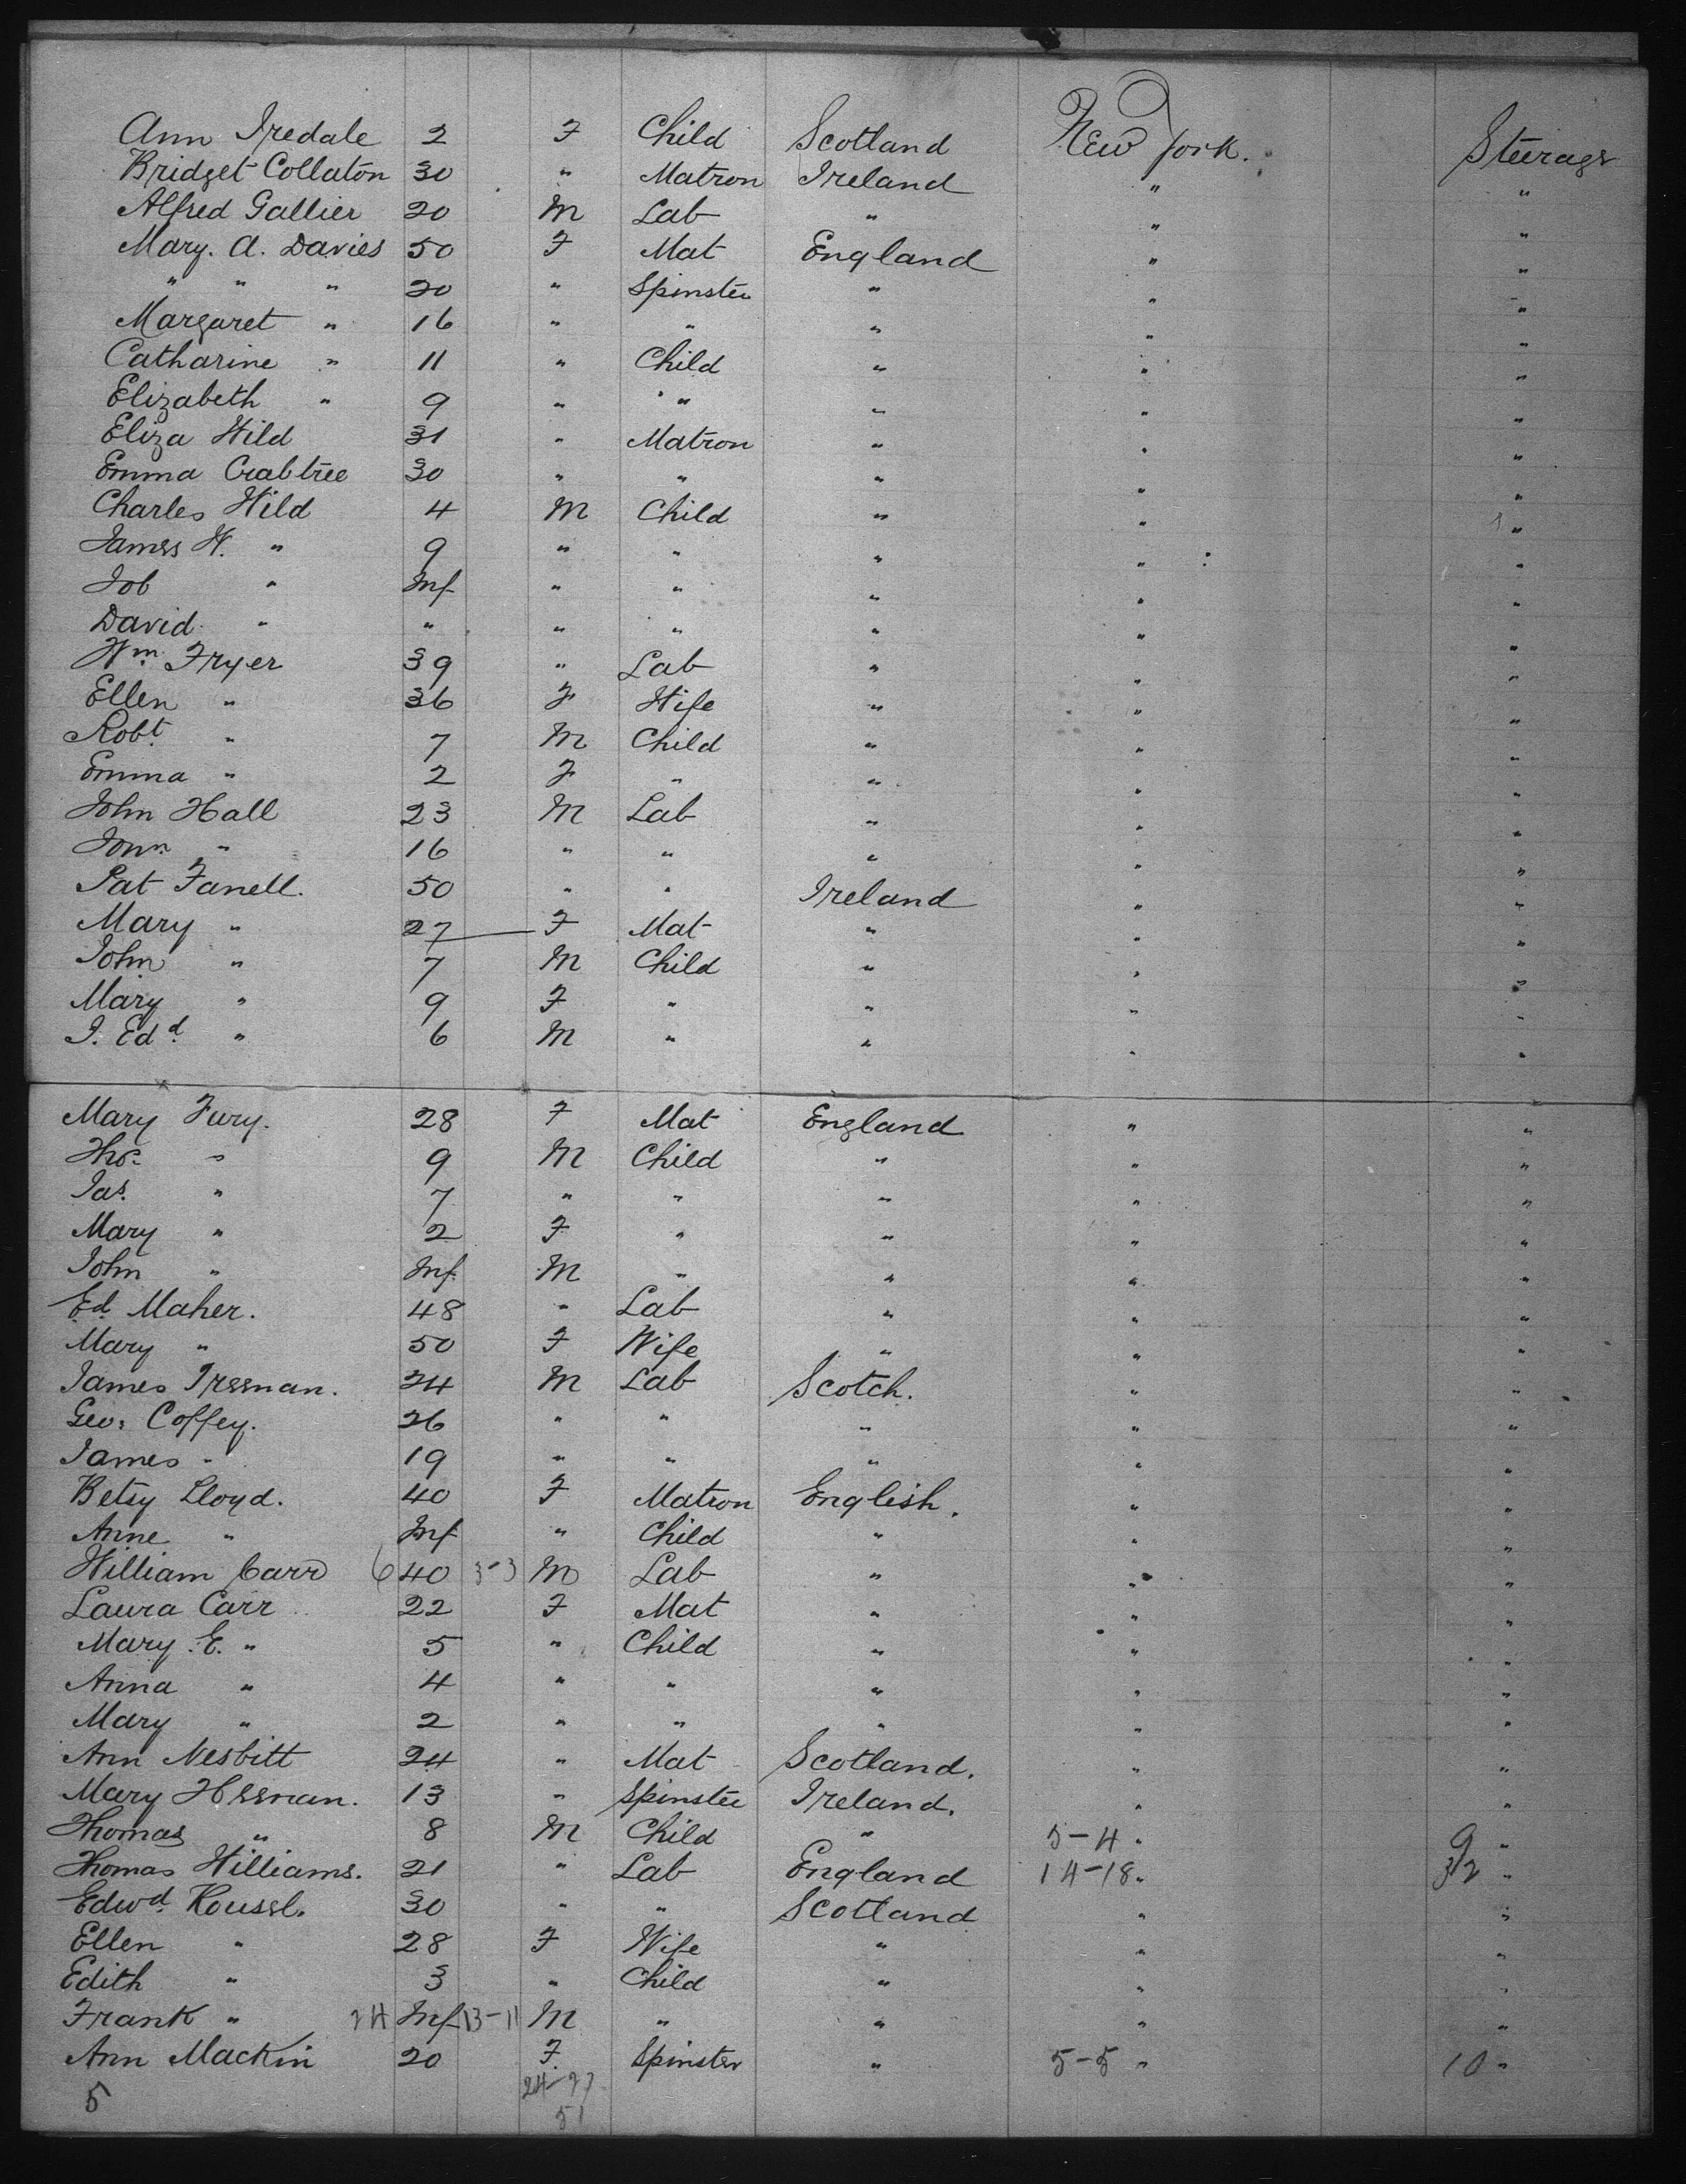 Ann Iredale 2 F Child Scotland New York. Steerage
Bridget Collaton 30 " Matron Ireland " "
Alfred Gallier 20 M Lab " " "
Mary. A. Davies 50 F Mat England " "
" " " 20 " Spinster " " "
Margaret " 16 " " " " "
Catharine " 11 " Child " " "
Elizabeth " 9 " " " " "
Eliza Wild 31 " Matron " " "
Emma Crabtree 30 " " " " "
Charles Wild 4 M Child " " "
James W. " 9 " " " " "
Job " Inf " " " " "
David " " " " " " "
Wm Fryer 39 " Lab " " "
Ellen " 36 F Wife " " "
Robt " 7 M Child " " "
Emma " 2 F " " " "
John Hall 23 M Lab " " "
" 16 " " " " "
Pat Fanell. 50 " " Ireland " "
Mary " 27 F Mat " " "
John " 7 M Child " " "
Mary " 9 F " " " "
J. Edd " 6 M " " " "
Mary Fury. 28 F Mat England " "
Thos. " 9 M Child " " "
Jas. " 7 " " " " "
Mary " 2 F " " " "
John " Inf. M " " " "
Ed. Maher. 48 " Lab " " "
Mary " 50 F Wife " " "
James 24 M Lab Scotch. " "
Geo: Coffey. 26 " " " " "
James " 19 " " " " "
Betsy Lloyd. 40 F Matron English. " "
Anne " Inf " Child " " "
William Carr 6 40 3-3 M Lab " " "
Laura Carr 22 F Mat " " "
Mary E. " 5 " Child " " "
Anna " 4 " " " " "
Mary " 2 " " " " "
Ann Nesbitt 24 " Mat Scotland. " "
Mary Heenan. 13 " Spinster Ireland. " "
Thomas " 8 M Child " 5-4 " 9 "
Thomas Williams. 21 " Lab England 14-18 " 32 "
Edwd 30 " " Scotland " "
Ellen " 28 F Wife " " "
Edith " 3 " Child " " "
Frank " 24 Inf 13-11 M " " " "
Ann Mackin 20 F. Spinster " 5-5 " 10 "
5 24-27
51